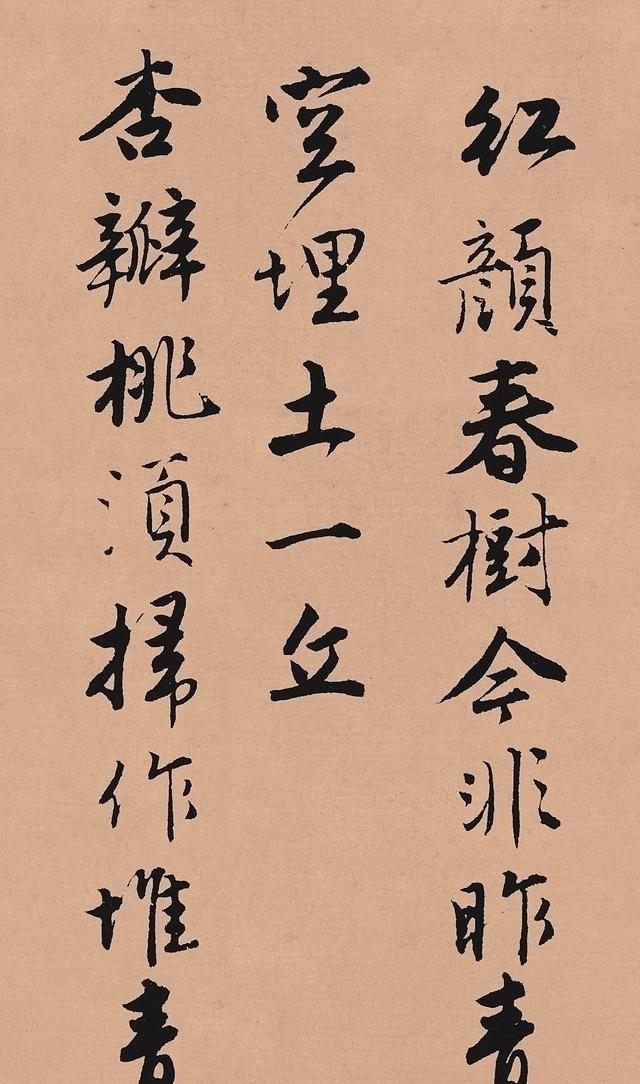 紅顏春樹今非昨青
空埋土一丘
杏瓣桃須掃作堆青